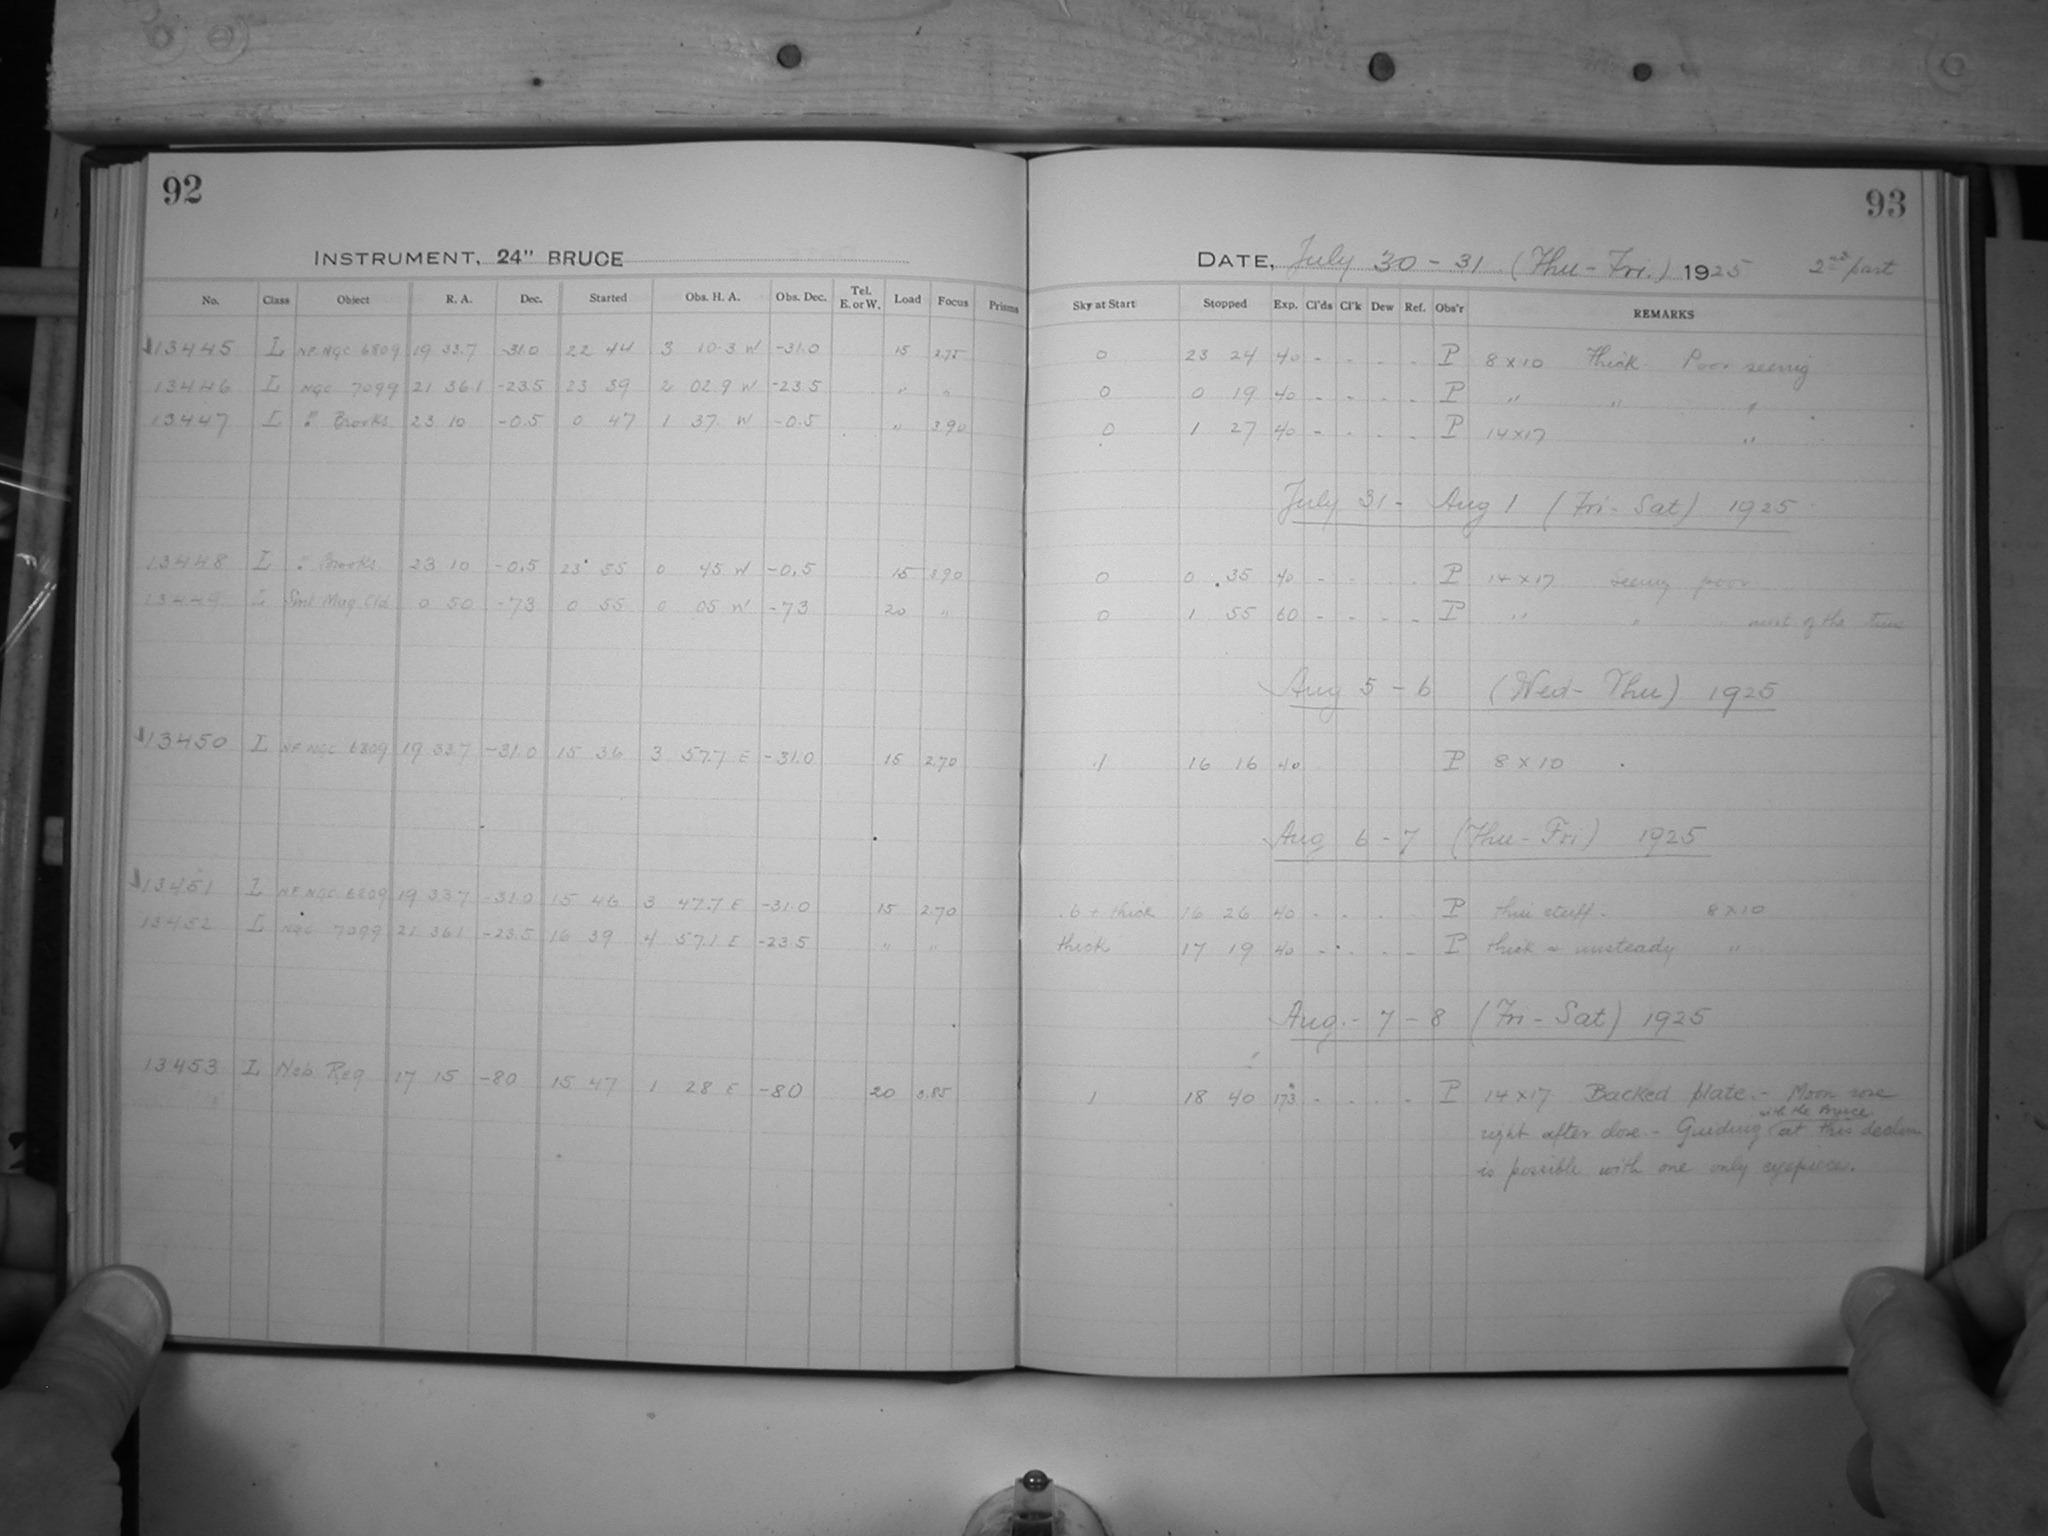 92
INSTRUMENT, 24" BRUCE
No. Class Object R. A. Dec. Started Obs. H. A. Obs. Dec. Tel. E. or W. Load Focus Prisms
13445 L NF NGC 6809 19 33.7 -31.0 22 44 3 10.3 W -31.0 15 2.75
13446 L NGC 7099 21 36.1 -23.5 23 39 2 02.9 W -23.5 " "
13447 L Brooks 23 10 -0.5 0 47 1 37 W -0.5 " 3.90
13448 L Brooks 23 10 -0.5 23 55 0 45 W -0.5 15 3.90
13449 L Sml Mag. Cld 0 50 -73 0 55 0 05 W -73 20 "
13450 L NF NGC 6809 19 33.7 -31.0 15 36 3 57.7 E -31.0 15 2.70
13451 L NF NGC 6809 19 33.7 -31.0 15 46 3 47.7 E -31.0 15 2.70
13452 L NGC 7099 21 36.1 -23.5 16 39 4 57.1 E -23.5 " "
13453 L Neb. Reg 17 15 -80 15 47 1 28 E -80 20 3.85
93
DATE, July 30 - 31 (Thu - Fri.) 1925 2nd part
Sky at Start Stopped Exp. Cl'ds Cl'k Dew Ref. Obs'r REMARKS
0 23 24 40 - - - - P 8 x 10 Thick. Poor seeing
0 0 19 40 - - - - P " " "
0 1 27 40 - - - - P 14 x 17 "
July 31 - Aug 1 (Fri - Sat) 1925
0 0 35 40 - - - - P 14 x 17 Seeing poor
0 1 55 60 - - - - P " " most of the time
Aug 5 - 6 (Wed - Thu) 1925
1 16 16 40 P 8 x 10
Aug 6 - 7 (Thu - Fri) 1925
.6 + thick 16 26 40 - - - - P thin stuff. 8 x 10
thick 17 19 40 - - - - P thick & unsteady "
Aug. - 7 - 8 (Fri - Sat) 1925
1 18 40 173 - - - - P 14 x 17 Backed plate. - Moon rose
with the Bruce
right after close. - Guiding at this declin
is possible with one only eyepiece.